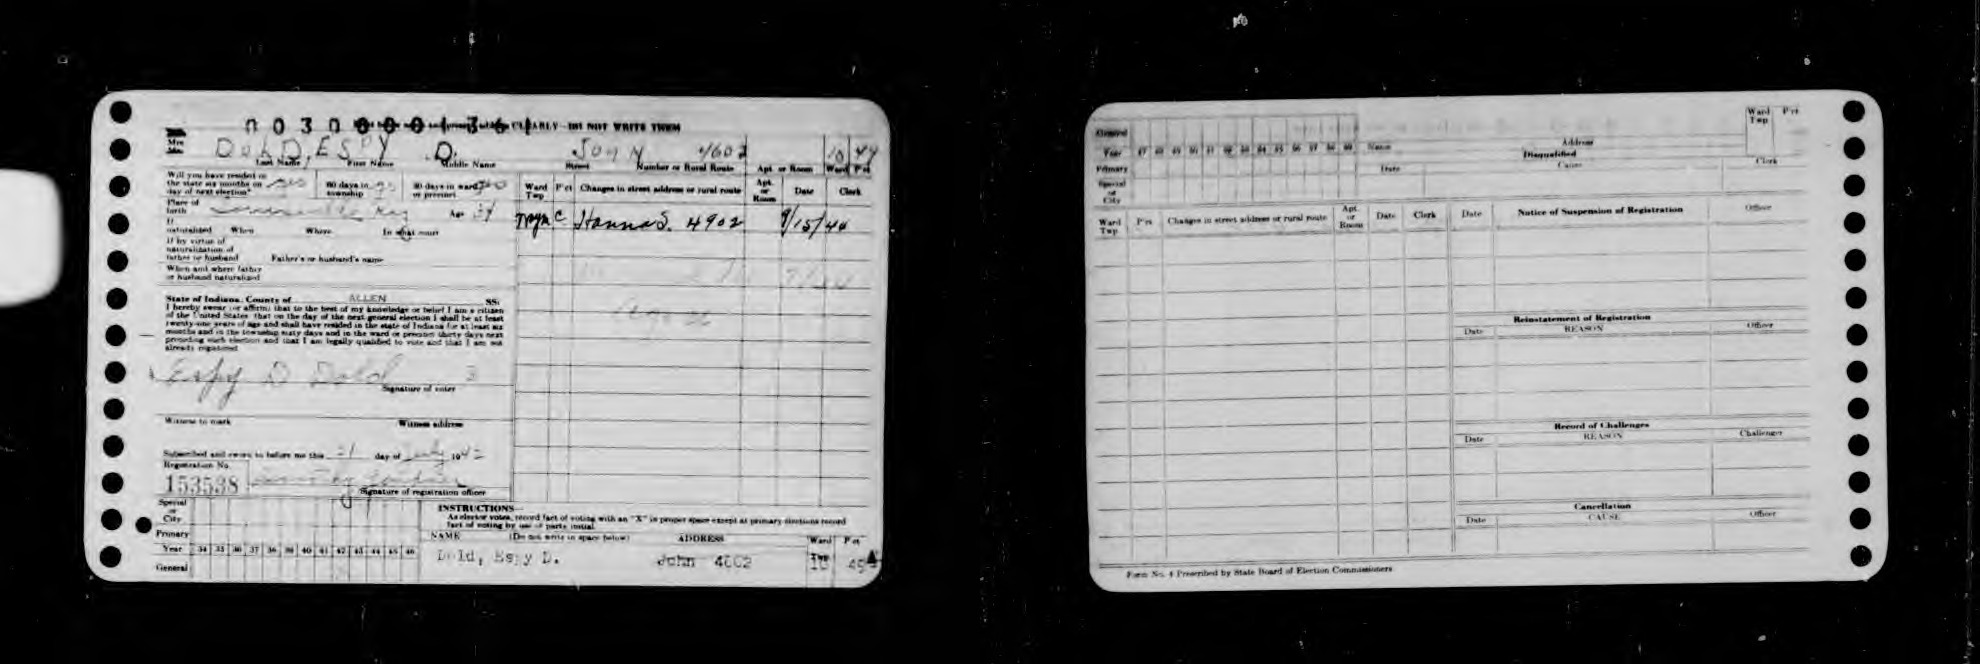 CLEARLY—DO NOT WRITE THEM
Mrs.
DOLD, ESPY D. John 4602 10
Last Name First Name Middle Name Street Number or Rural Route Apt. or Room Ward P'ct
Will you have resided in
the state six months on
day of next election? yes
60 days in
township yes
30 days in ward
or precinct
Place of
birth Age
If
naturalized When Where In what court
If by virtue of
naturalization of
father or husband Father's or husband's name
When and where father
or husband naturalized
State of Indiana, County of ALLEN SS:
I hereby swear (or affirm) that to the best of my knowledge or belief I am a citizen
of the United States, that on the day of the next general election I shall be at least
twenty-one years of age and shall have resided in the state of Indiana for at least six
months and in the township sixty days and in the ward or precinct thirty days next
preceding such election and that I am legally qualified to vote and that I am not
already registered
Espy D Dold
Signature of voter
Witness to mark Witness address
Subscribed and sworn to before me this 21 day of July 1942
Registration No.
153538
Signature of registration officer
Ward
Twp P'ct Changes in street address or rural route Apt.
or
Room Date Clerk
Wayn C Hanna S. 4902 9/15/44
Special
or
City
Primary
Year 34 35 36 37 38 39 40 41 42 43 44 45 46
General
INSTRUCTIONS—
As elector votes, record fact of voting with an "X" in proper space except at primary elections record
fact of voting by use of party initial.
NAME (Do not write in space below) ADDRESS Ward
Twp P'ct
Dold, Espy D. John 4602 10
General
Year 47 48 49 50 51 52 53 54 55 56 57 58 59
Primary
Special
or
City
Name Address
Disqualified
Date Cause Clerk
Ward
Twp P'ct
Ward
Twp P'ct Changes in street address or rural route Apt.
or
Room Date Clerk
Date Notice of Suspension of Registration Officer
Reinstatement of Registration
Date REASON Officer
Record of Challenges
Date REASON Challenger
Cancellation
Date CAUSE Officer
Form No. 4 Prescribed by State Board of Election Commissioners